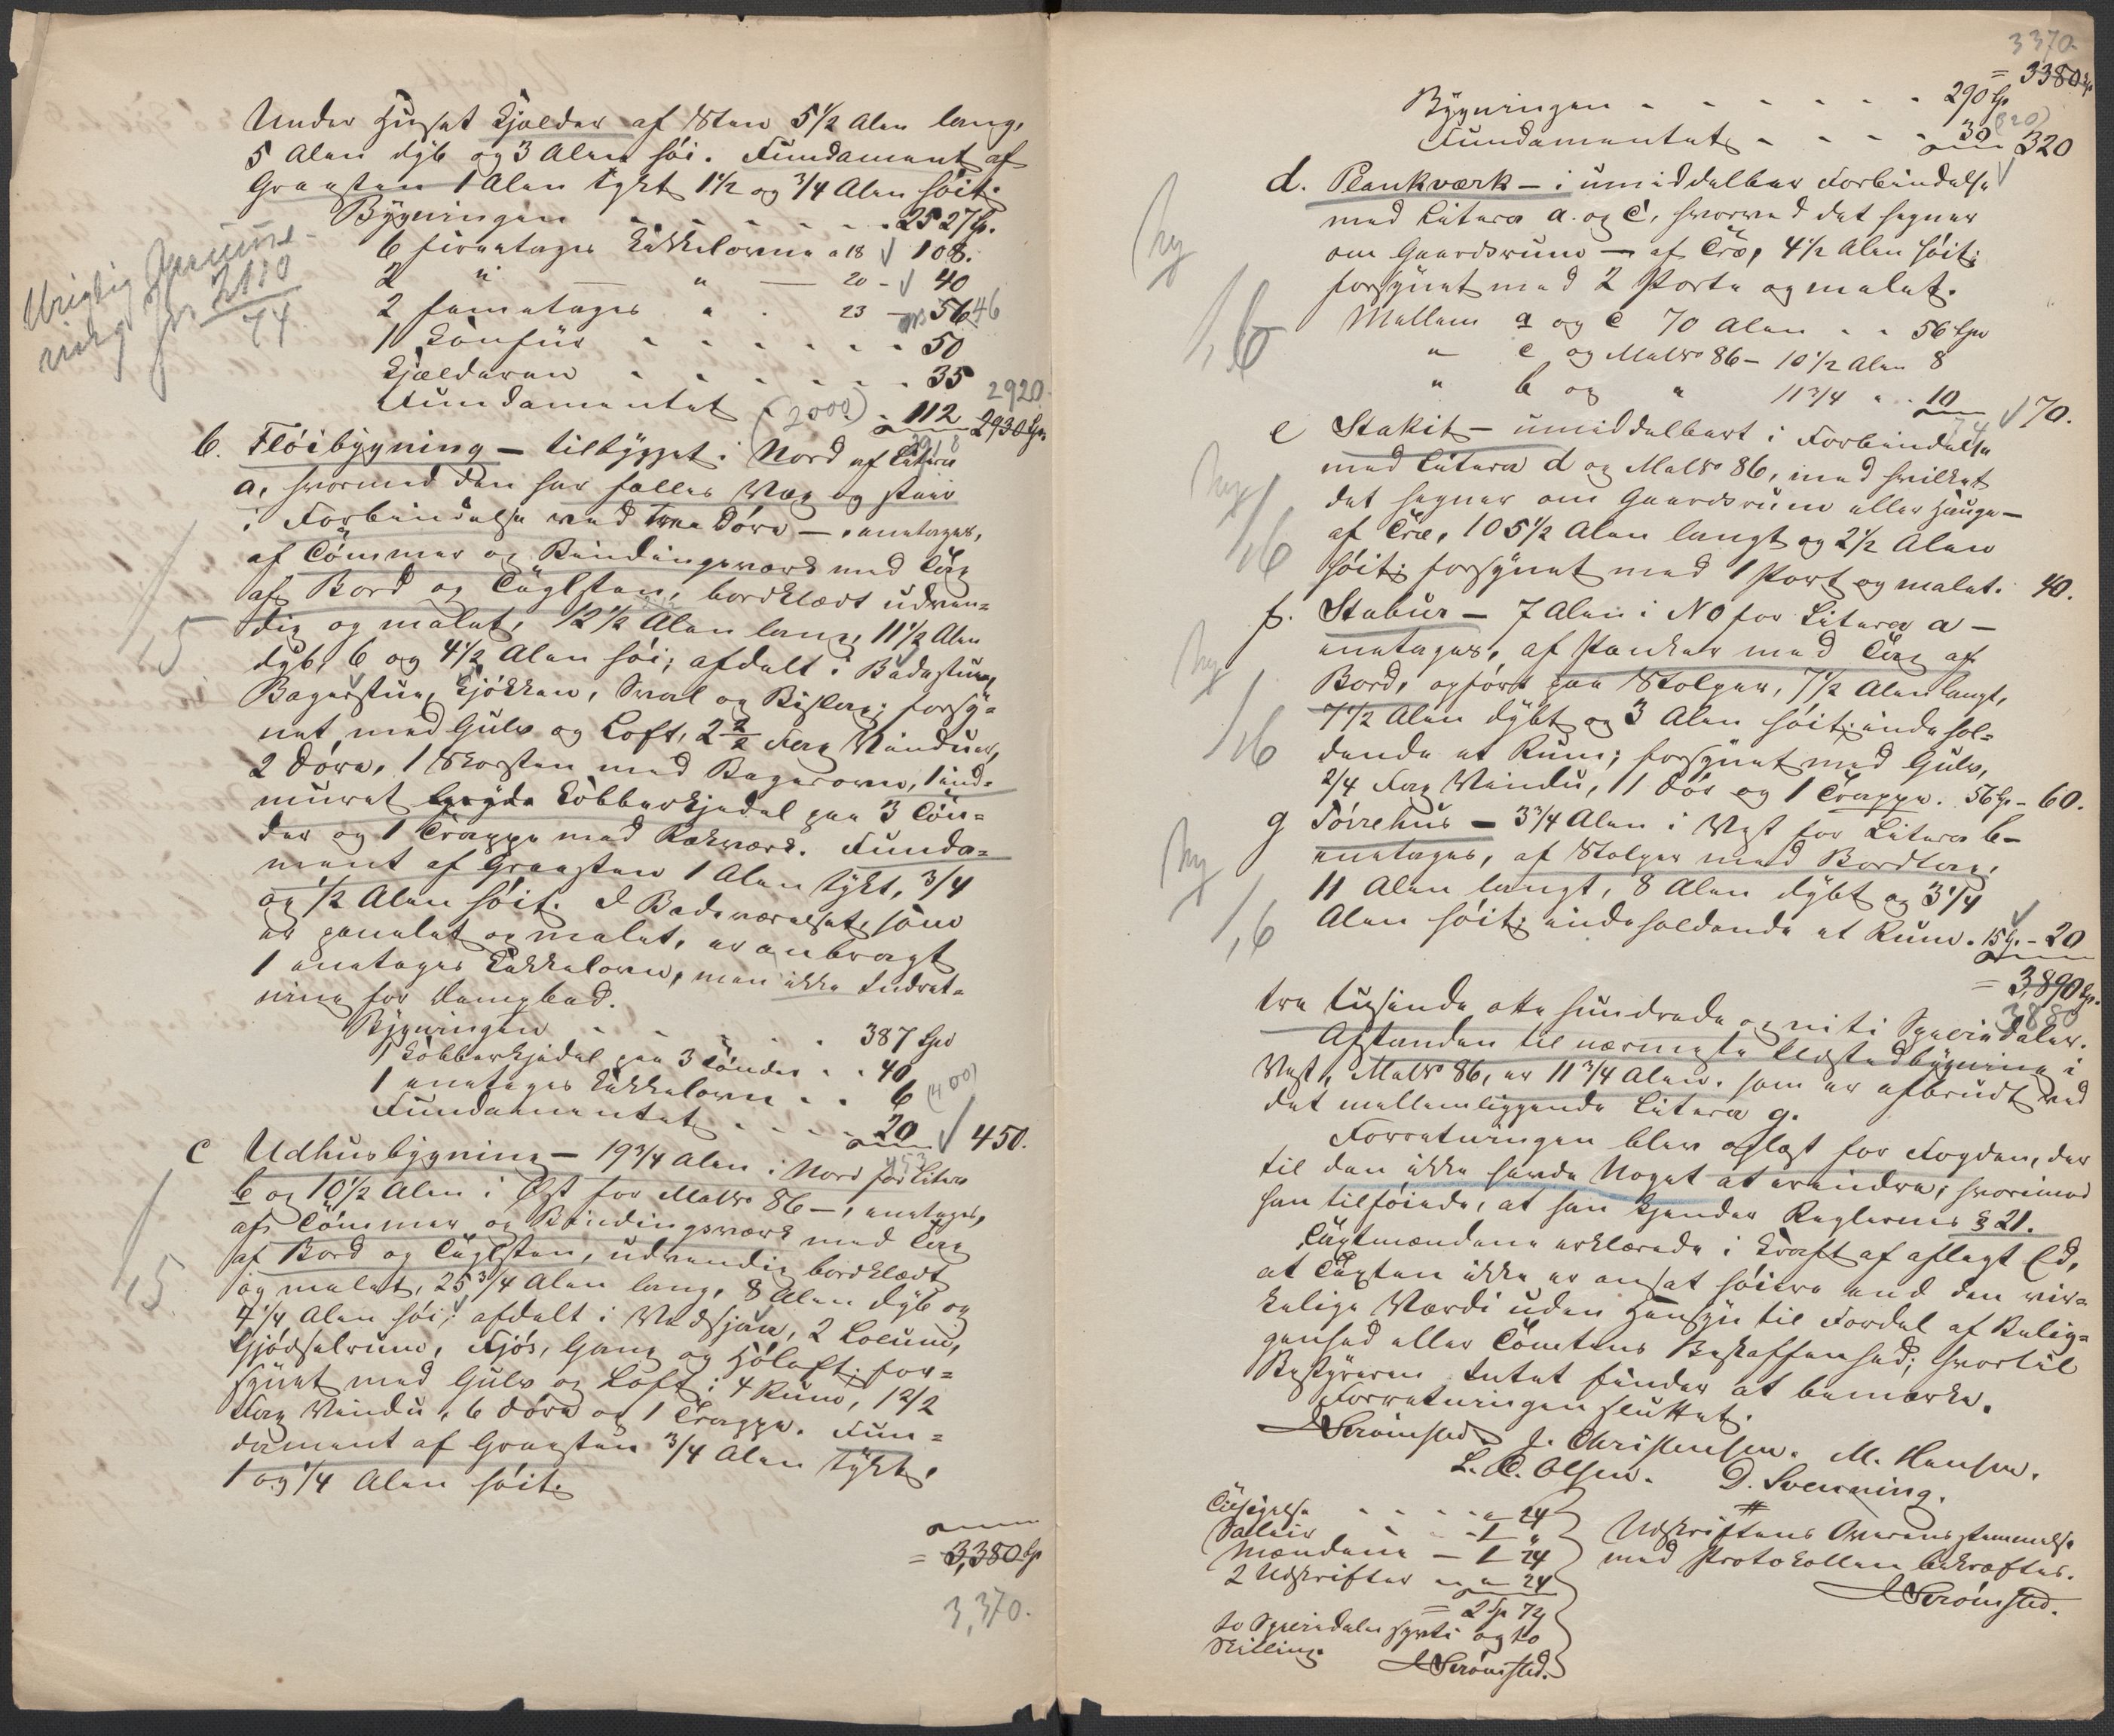 Under Huset Kjælder af Sten 5 1/2 Alen lang,
5 Alen dyb og 3 Alen høi. Fundament af
Graasten 1 Alen tykt 1 1/2 og 3/4 Alen høit.
Bygningen - - - - - 2527 Sp.
6 fireetages Kakkelovne a 18 √ 108.
2 " — " — 20 - √ 40
2 femetages " . 23 - 56 46
1 Komfur - - - - - - 50
Kjælderen - - - - - - 35 2920.
Fundamentet (2000) - 112 2930 Sp.
Urigtig
for 2110
74
b. Fløibygning — tilbygget i Nord af Litera 2918
a, hvormed den har fælles Væg og staar
i Forbindelse ved tvende Døre —, eenetages,
af Tømmer og Bindingsværk med Tag
af Bord og Taglsten, bordklædt udven=
dig og malet, 12 1/2 Alen lang, 11 1/2 Alen
dyb, 6 og 4 1/2 Alen høi; afdelt i Badestue,
Bagerstue, Kjøkken, Sval og Bislag; forsy=
net med Gulv og Loft, 2 2/2 Fag Vinduer,
2 Døre, 1 Skorsten med Bagerovn, 1 ind=
muret Kobberkjedel paa 3 Tøn=
der og 1 Trappe med Rækværk. Funda=
ment af Graasten 1 Alen tykt, 3/4
og 1/2 Alen høit. I Badeværelset, som
er panelet og malet, er anbragt
1 eenetages Kakkelovn, men ikke Indret=
ning for Dampbad.
Bygningen - - - - - 387 Spd
1 Kobberkjedel paa 3 Tønder - - 40
1 eenetages Kakkelovn - - 6 (400)
Fundamentet - - - - 20 √ 450.
453
c Udhusbygning — 19 3/4 Alen i Nord for Litera
b og 10 1/2 Alen i Øst for Matr No 86 —, eenetages,
af Tømmer og Bindingsværk med Tag
af Bord og Taglsten, udvendig bordklædt
og malet, 25 3/4 Alen lang, 8 Alen dyb og
4 1/4 Alen høi; afdelt i Vedskjul, 2 Locum,
Gjødselrum, Fjøs, Gang og Høloft; for=
synet med Gulv og Loft i 4 Rum, 1 2/2
Fag Vindu, 6 Døre og 1 Trappe. Fun=
dament af Graasten 3/4 Alen tykt,
1 og 1/4 Alen høit.
= 3,380 Sp
3,370.
3370
= 3380 Sp
Bygningen - - - - - - 290 Sp
(320)
Fundamentet - - - - 30 320
d. Plankværk — i umiddelbar Forbindelse √
med Litera a. og c, hvorved det hegner
om Gaardsrum — af Træ, 4 1/2 Alen høit;
forsynet med 2 Porte og malet.
Mellem a og c 70 Alen - - 56 Spd
" c og Matr No 86 — 10 1/2 Alen 8
" b og " 11 3/4 " - 10 √ 70.
74
e Stakit — umiddelbart i Forbindelse
med Litera d og Matr No 86, med hvilket
det hegner om Gaardsrum eller Hauge —
af Træ, 105 1/2 Alen langt og 2 1/2 Alen
høit; forsynet med 1 Port og malet. 40.
f. Stabur — 7 Alen i NO for Litera a —
eenetages, af Planker med Tag af
Bord, opført paa Stolper, 7 1/2 Alen langt,
7 1/2 Alen dybt og 3 Alen høit; indehol=
dende et Rum; forsynet med Gulv,
2/4 Fag Vindu, 1 Dør og 1 Trappe. 56 Sp - 60.
g Tørrehus — 3 3/4 Alen i Vest for Litera b —
eenetages, af Stolper med Bordtag,
11 Alen langt, 8 Alen dybt og 3 1/4
Alen høit; indeholdende et Rum. 15 Sp. - 20
= 3,890 Sp.
3880
tre tusinde otte hundrede og niti Speciedaler.
Afstanden til nærmeste Ildstedbygning i
Vest, Matr No 86, er 11 3/4 Alen, som er afbrudt ved
det mellemliggende Litera g.
Forretningen blev oplæst for Fogden, der
til den ikke havde Noget at erindre; hvorimod
han tilføiede, at han kjender Reglernes § 21.
Taxtmændene erklærede i Kraft af aflagt Ed,
at Taxten ikke er ansat høiere end den vir=
kelige Værdi uden Hensyn til Fordel af Belig=
genhed eller Tomtens Beskaffenhed; hvortil
Bestyreren Intet finder at bemærke.
Forretningen sluttet.
Strømsted. J. Christensen. M. Hansen.
L. C. Olsen. D. Svenning.
Tilsigelse - - - - " 24
Salair - - - 1 "
Mændene — 1 24
2 Udskrifter - - " 24
= 2 Sp 72
to Speciedaler sytti og to
Skilling.
Strømsted.
Udskriftens Overensstemmelse
med Protokollen bekræftes.
Strømsted.
ny
1,6
ny
1,6
ny
1,6
ny
1,6
1,5
1,5